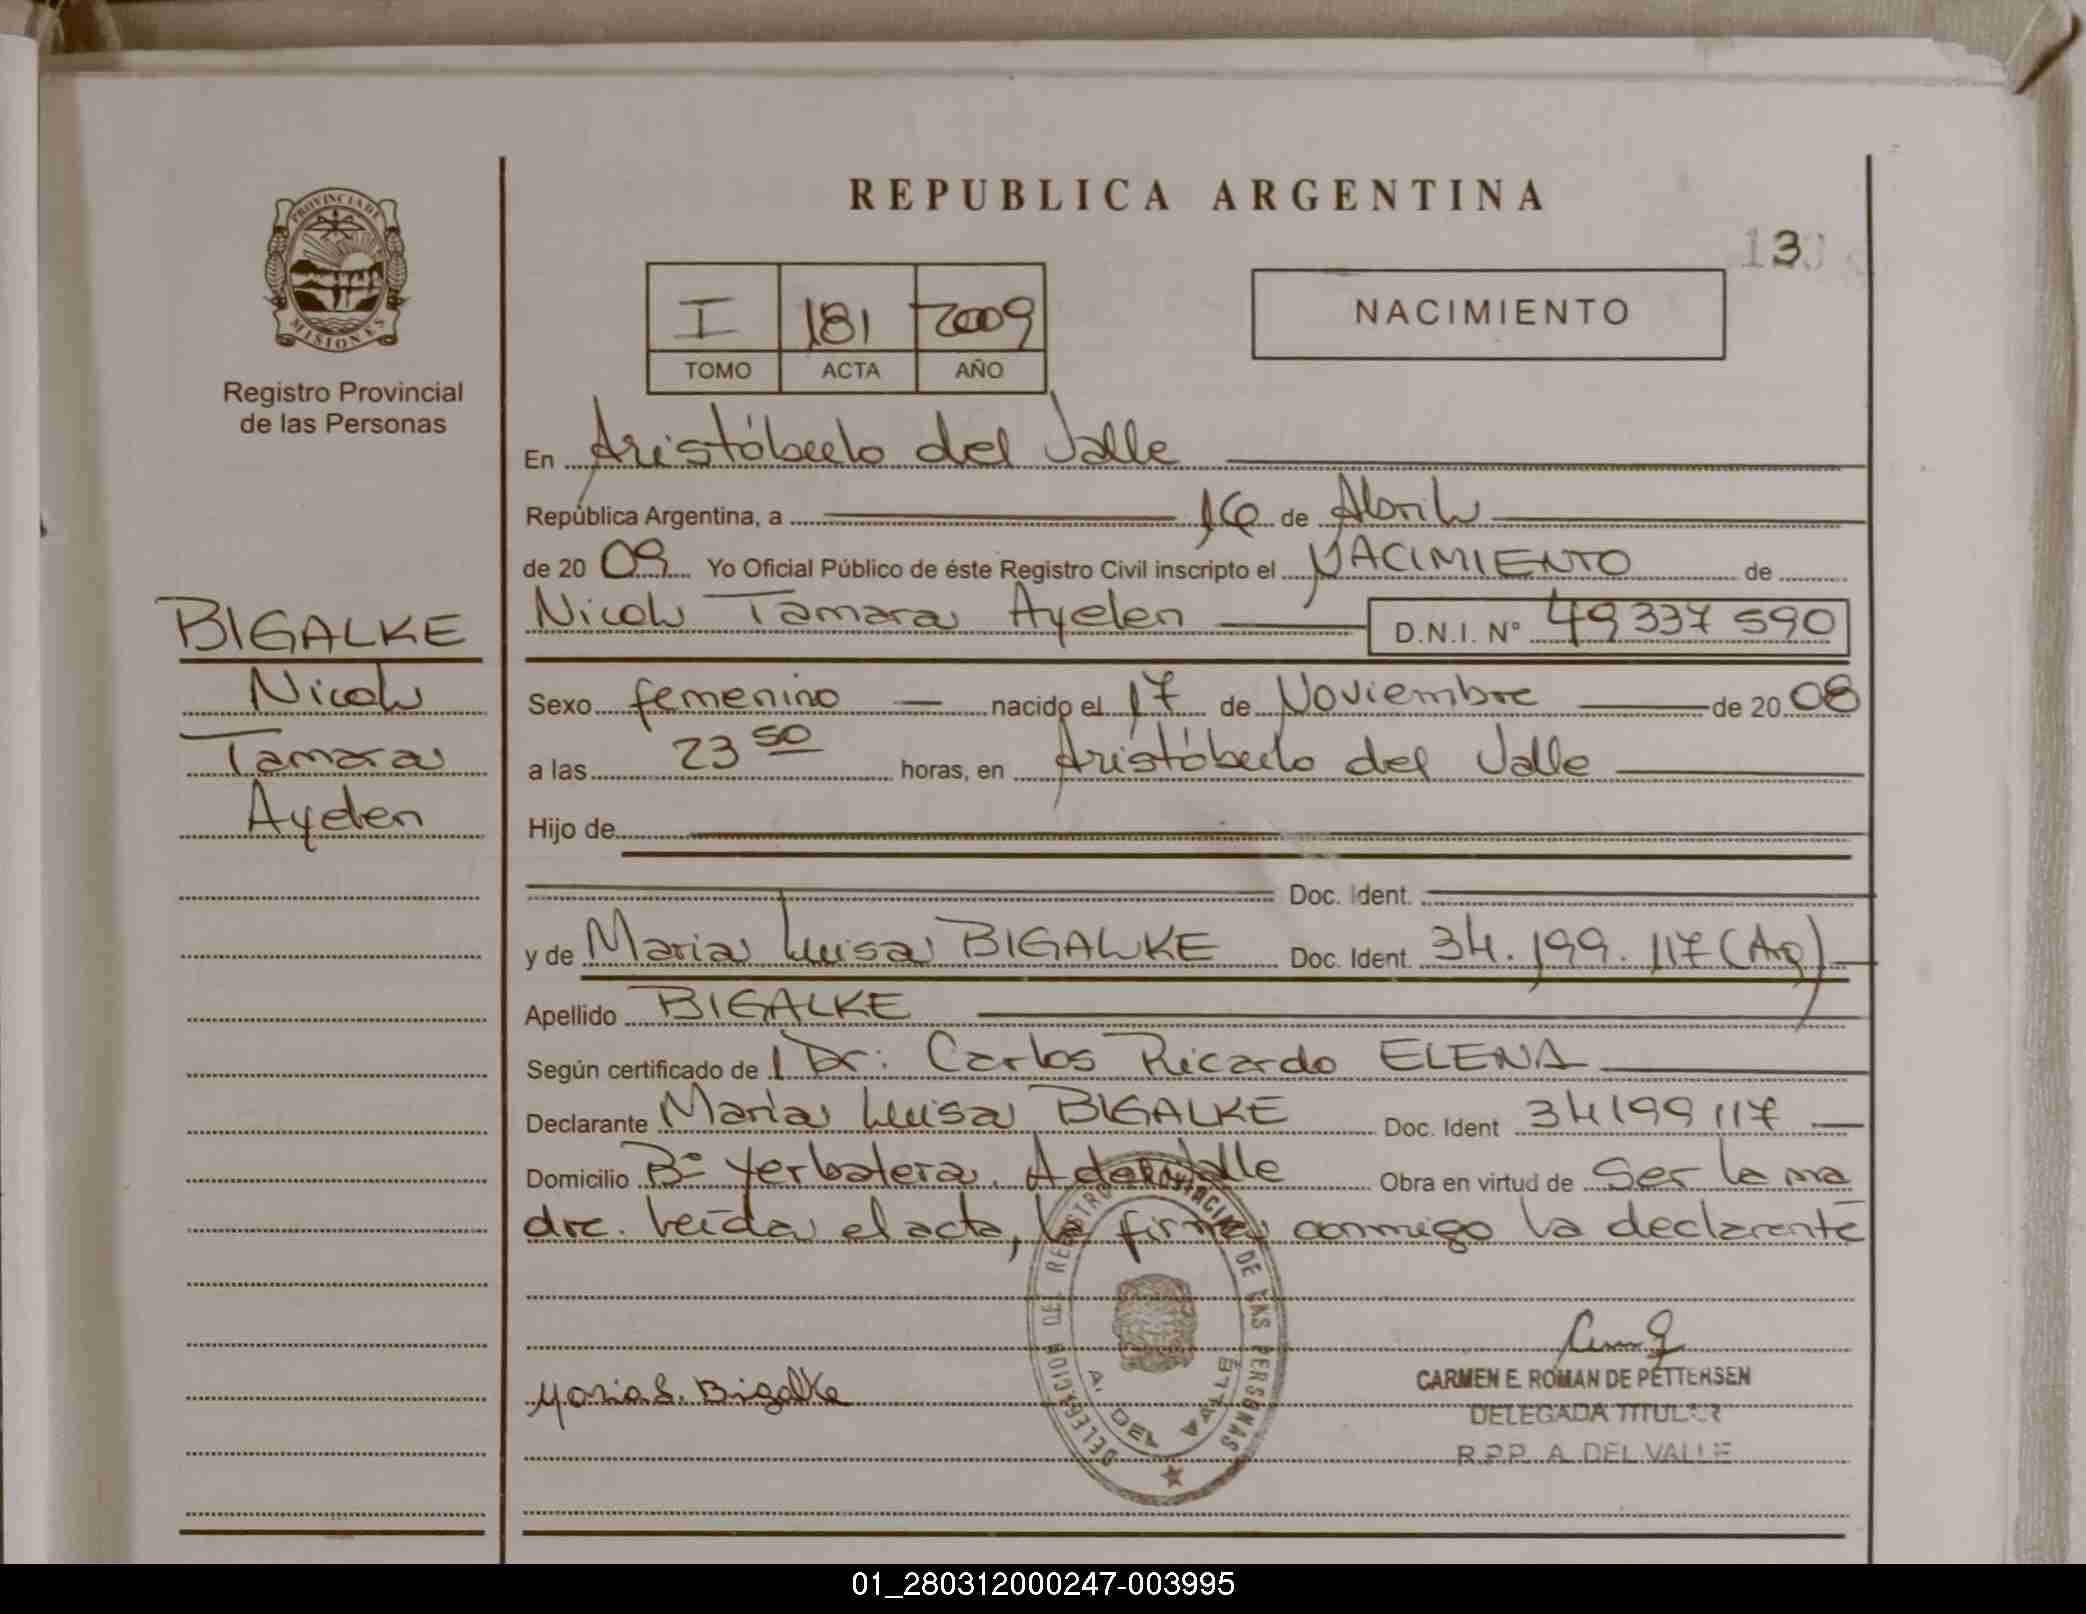 REPUBLICA ARGENTINA
13
PROVINCIA DE
MISIONES
Registro Provincial
de las Personas
I 181 2009
TOMO ACTA AÑO
NACIMIENTO
En Aristóbulo del Valle
República Argentina, a 16 de Abril
de 20 09 Yo Oficial Público de éste Registro Civil inscripto el NACIMIENTO de
BIGALKE
Nicol
Tamara
Ayelen
Nicol Tamara Ayelen D.N.I. N° 49 337 590
Sexo femenino nacido el 17 de Noviembre de 20 08
a las 23 50 horas, en Aristóbulo del Valle
Hijo de
Doc. Ident.
y de Maria Luisa BIGALKE Doc. Ident. 34.199.117 (Arg)
Apellido BIGALKE
Según certificado de l Dr: Carlos Ricardo ELENA
Declarante Maria Luisa BIGALKE Doc. Ident 34199117
Domicilio B° Yerbatera. A del Valle Obra en virtud de Ser la ma
dre. Leída el acta, la firma conmigo la declarante
DELEGACION DEL REGISTRO PROVINCIAL DE LAS PERSONAS
A. DEL VALLE
Maria L. Bigalke
CARMEN E. ROMAN DE PETTERSEN
DELEGADA TITULAR
R.P.P. A. DEL VALLE
01_280312000247-003995